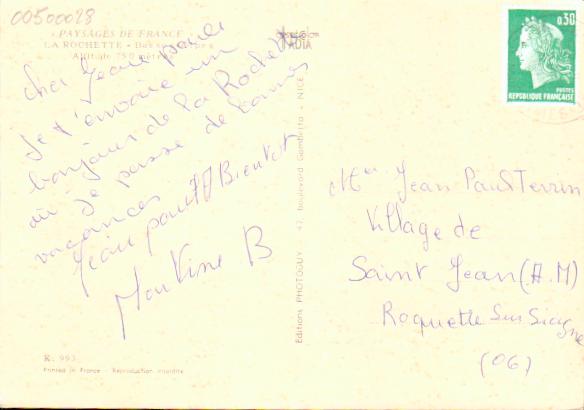 00500028
« PAYSAGES DE FRANCE »
LA ROCHETTE - Basses-Alpes
Altitude 750 mètres
cher Jean paul
Je t'envoie un
bonjour de la Rochette
ou je passe de bonnes
vacances
Jean paul A Bientot
Martine B
R. 993
Printed in France - Reproduction interdite
Editions PHOTOGUY - 47, boulevard Gambetta - NICE
0,30
POSTES
REPUBLIQUE FRANÇAISE
Jean Paul Terrin
Village de
Saint Jean (A.M)
Roquette Sur Siagne
(06)